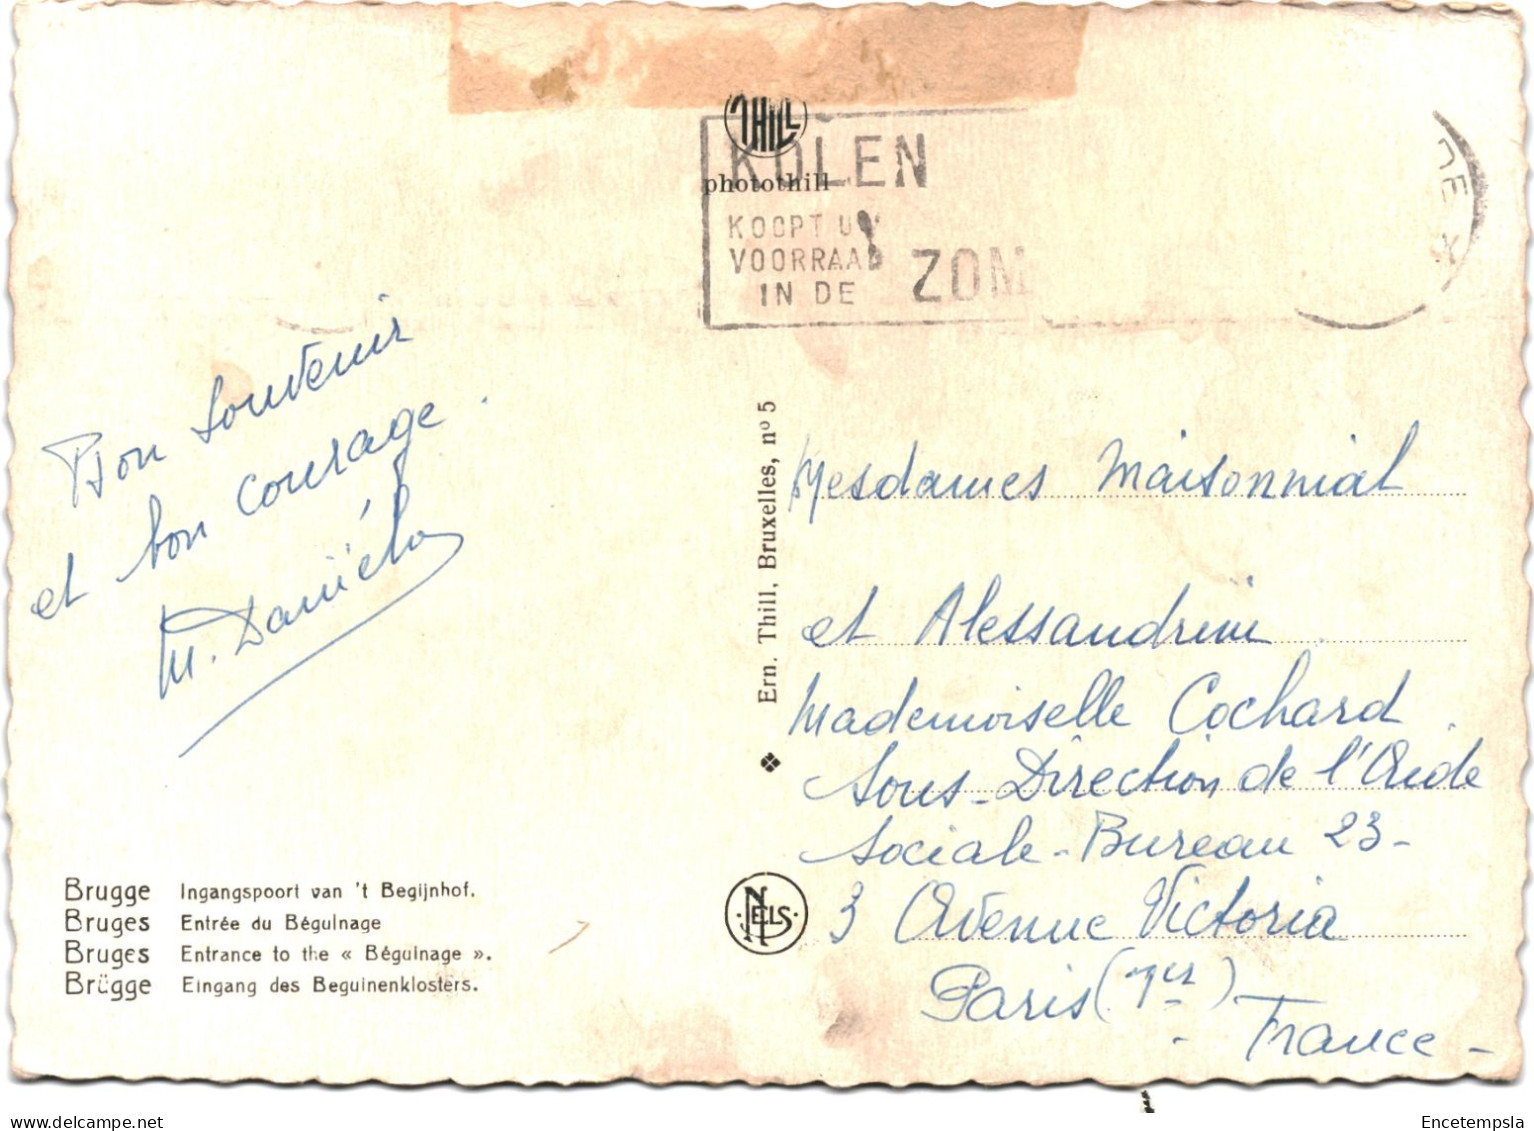 THILL
photothill
KOLEN
KOOPT UW
VOORRAAD
IN DE ZOM
Bon souvenir
et bon courage.
M. Daniélo
Ern. Thill, Bruxelles, nº 5
Mesdames Maisonnial
et Alessandrini
Mademoiselle Cochard
Sous-Direction de l'Aide
Sociale - Bureau 23 -
3 Avenue Victoria
Paris (1er)
France -
NELS
Brugge Ingangspoort van 't Begijnhof.
Bruges Entrée du Béguinage
Bruges Entrance to the « Béguinage ».
Brügge Eingang des Beguinenklosters.
Delcampe.net
Encetempsla